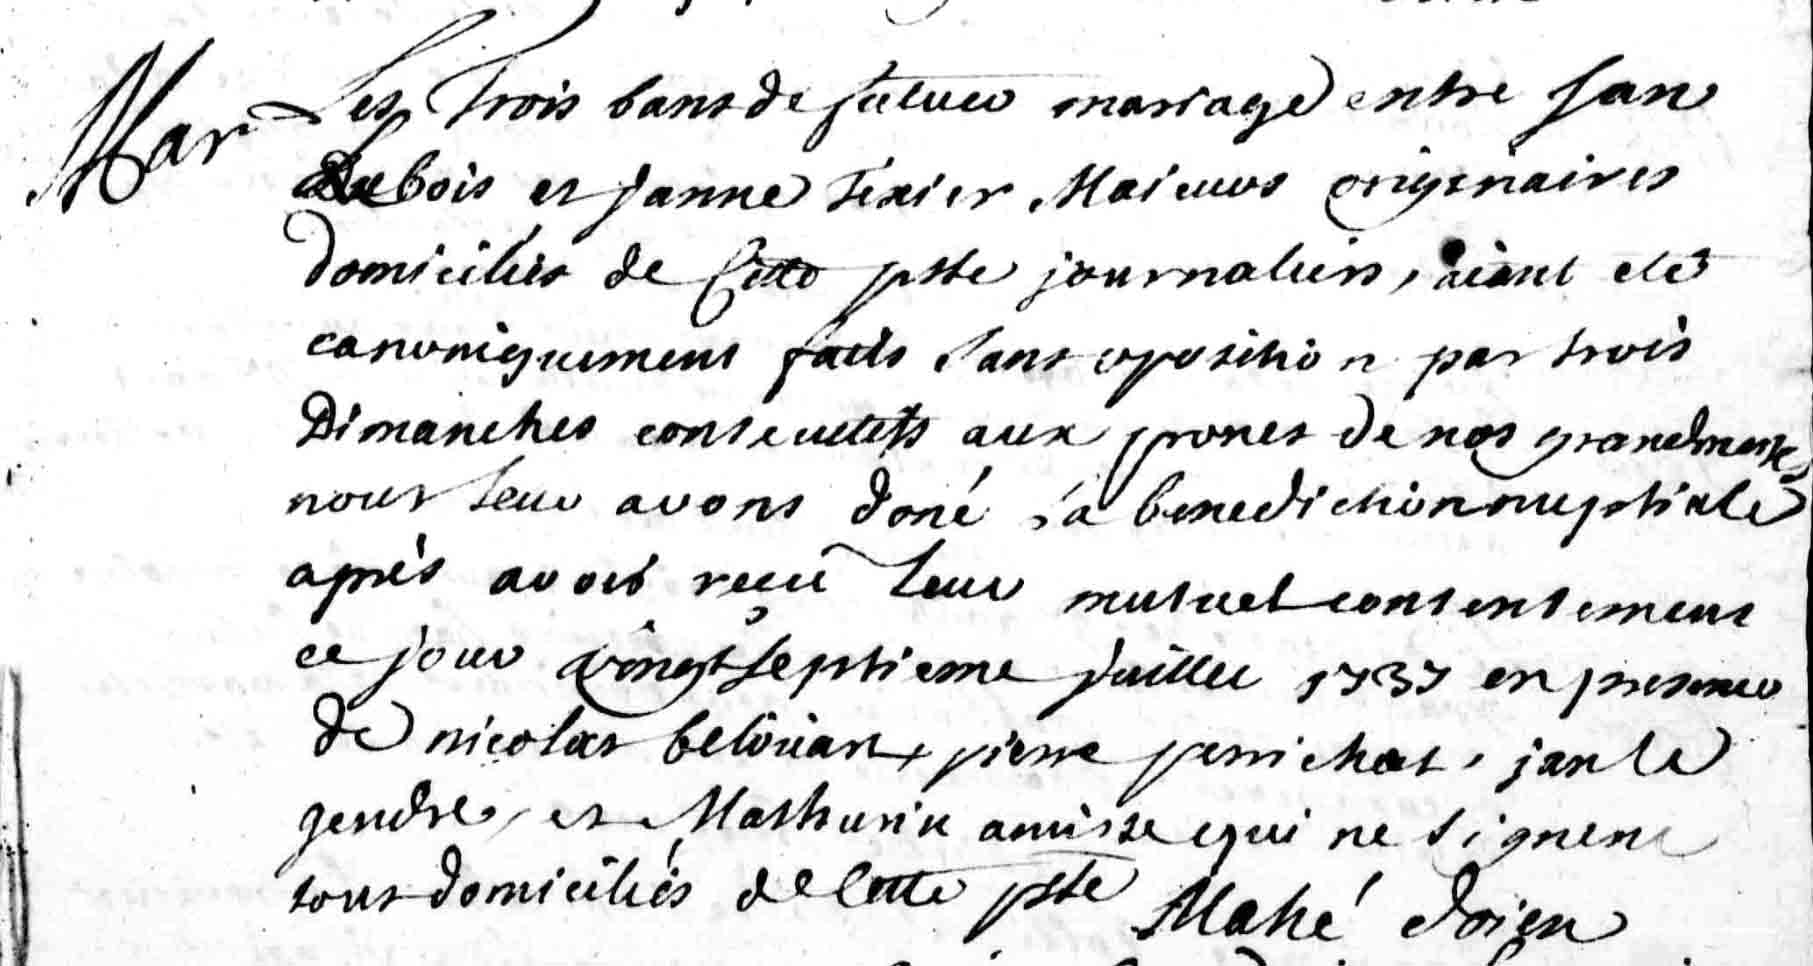 Mar Les Trois bans de futur mariage entre Jan
Dubois et janne Texier Majeurs originaires
Domiciliés de Cette psse journaliers, aiant eté
canoniquement faits sans oposition par trois
Dimanches consecutifs aux prones de nos grandmesses
nous leur avons doné la benediction nuptiale
après avoir reçu leur mutuel consentement
ce jour vingt septieme juillet 1737 en presence
de nicolas belouan, pierre perrichot, jan le
gendre, et Mathurin amisse qui ne signent
tous domiciliés de Cette psse Mahé doien